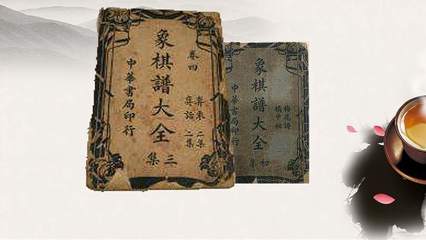 卷四
弈乘二集
弈話二集
象棋譜大全
三集
中華書局印行
梅花譜
橘中秘
象棋譜大全
初集
中華書局印行